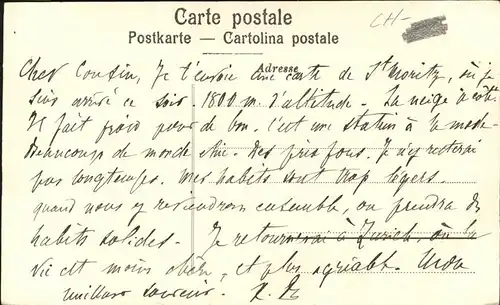 Carte postale
CH-
Postkarte — Cartolina postale
Adresse
Cher Cousin, Je t'envoie une carte de St Moritz, où je
suis arrivé ce soir. 1800 m. d'altitude. La neige à côté.
Il fait froid pour de bon. C'est une station à la mode.
Beaucoup de monde chic. Des prix fous. Je n'y resterai
pas longtemps. Mes habits sont trop légers.
quand nous y reviendrons ensemble, on prendra des
habits solides. Je retournerai à Zurich, où la
vie est moins chère, et plus agréable. Mon
meilleur souvenir.